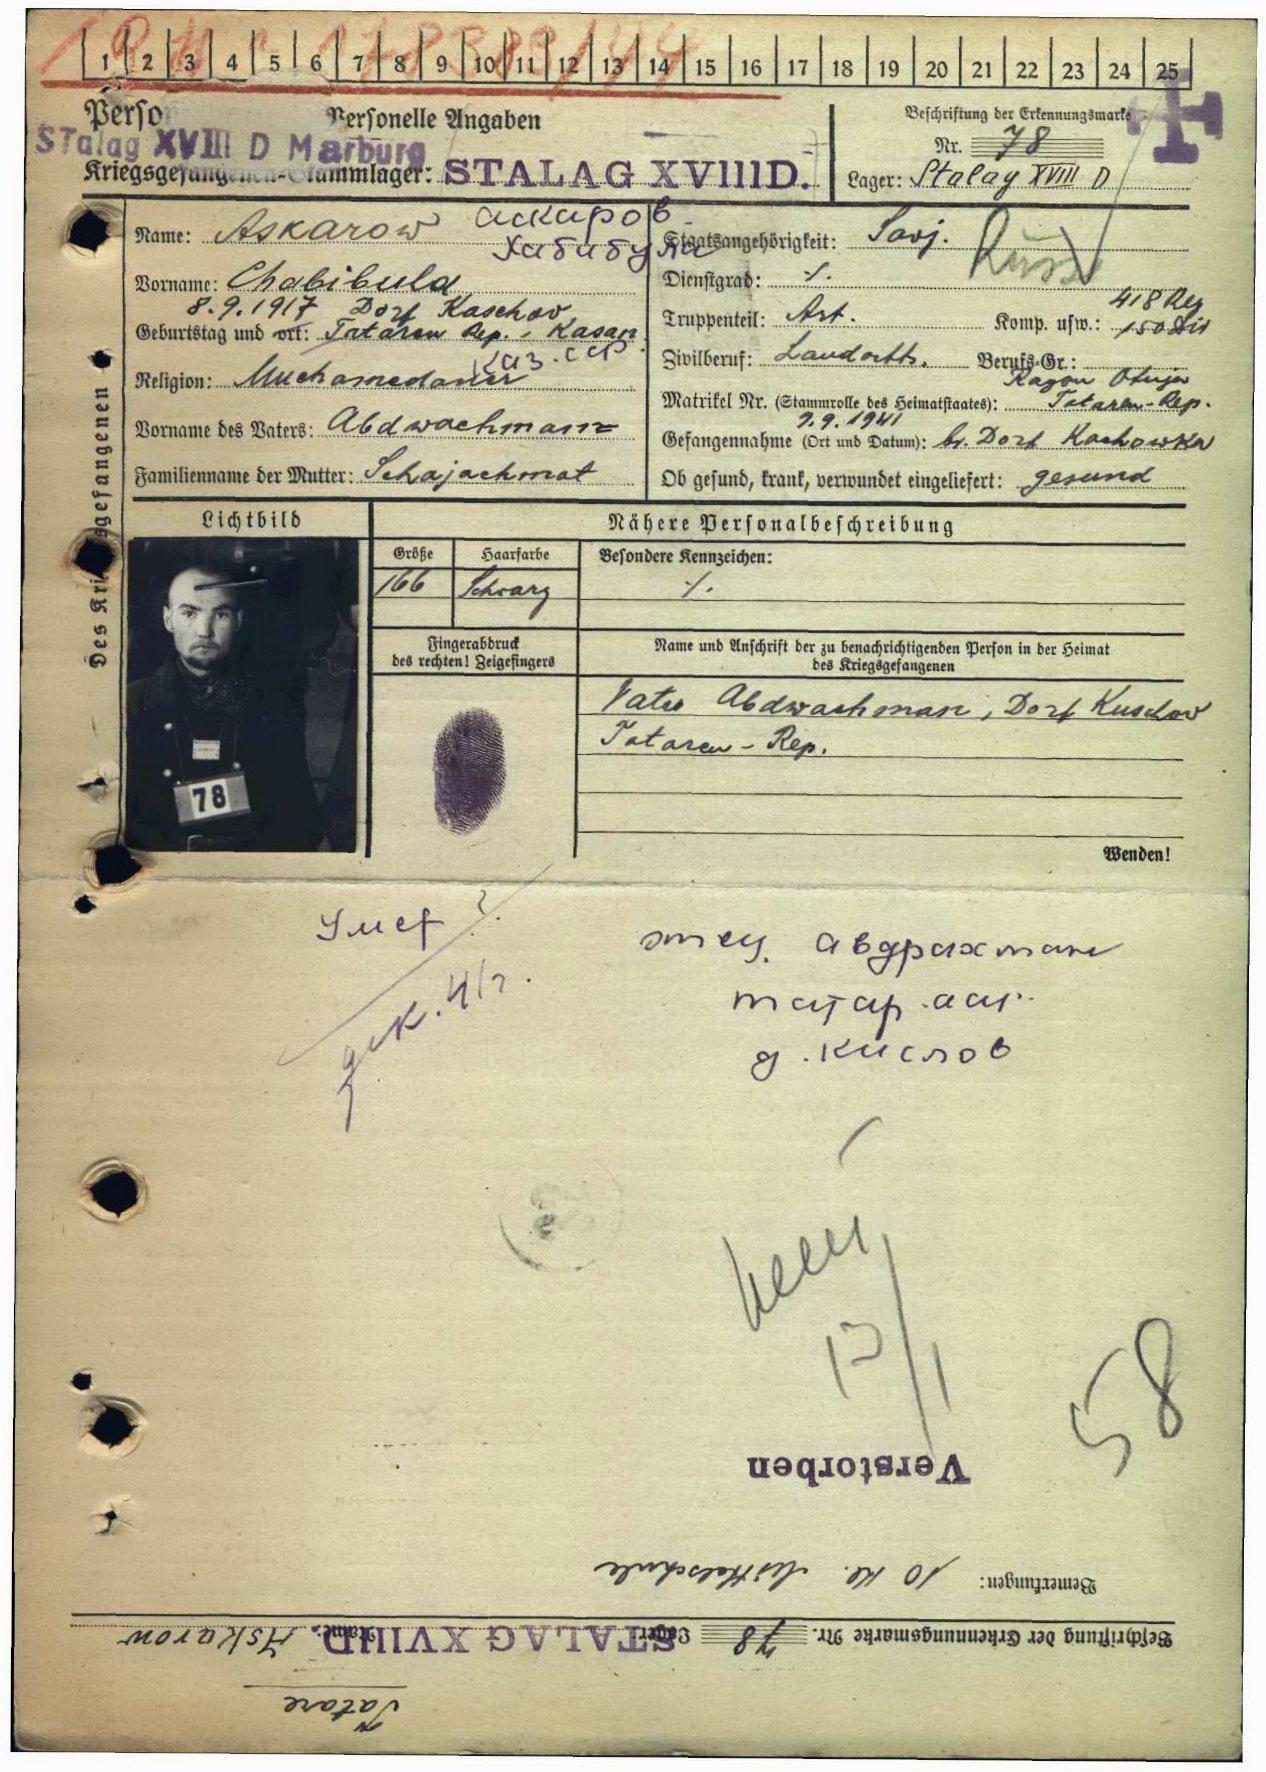 1 2 3 4 5 6 7 8 9 10 11 12 13 14 15 16 17 18 19 20 21 22 23 24 25
Personelle Angaben
Stalag XVIII D Marburg
Kriegsgefangenen-Stammlager: STALAG XVIIID.
Beschriftung der Erkennungsmarke
Nr. 78
Lager: Stalag XVIII D
Name: Askarow аскаров
хабибула
Vorname: Chabibula
8.9.1917 Dorf Kaschov
Geburtstag und -ort: Tataren Rep., Kasan
каз. сср.
Religion: Muchamedaner
Vorname des Vaters: Abdwachmann
Familienname der Mutter: Schajachmat
Staatsangehörigkeit: Sovj. Russe
Dienstgrad: ·/.
418 Reg
Truppenteil: Art. Komp. usw.: 150 Div
Zivilberuf: Landwirtsch. Berufs-Gr.:
Matrikel Nr. (Stammrolle des Heimatstaates): Tataren-Rep.
9.9.1941
Gefangennahme (Ort und Datum): br. Dorf Kachowka
Ob gesund, krank, verwundet eingeliefert: gesund
Des Kriegsgefangenen
Lichtbild
Nähere Personalbeschreibung
Größe Haarfarbe Besondere Kennzeichen:
166 Schwarz ·/.
Fingerabdruck
des rechten! Zeigefingers
Name und Anschrift der zu benachrichtigenden Person in der Heimat
des Kriegsgefangenen
Vater Abdwachman, Dorf Kuschov
Tataren-Rep.
78
Wenden!
Умер ?
дек. 41г.
отец. авдрахман
татар. аср.
д. кислов
13/1
58
Verstorben
Bemerkungen: 10 Kl. Mittelschule
Beschriftung der Erkennungsmarke Nr. 78 Lager: STALAG XVIIID. Name: Askarow
Tatare